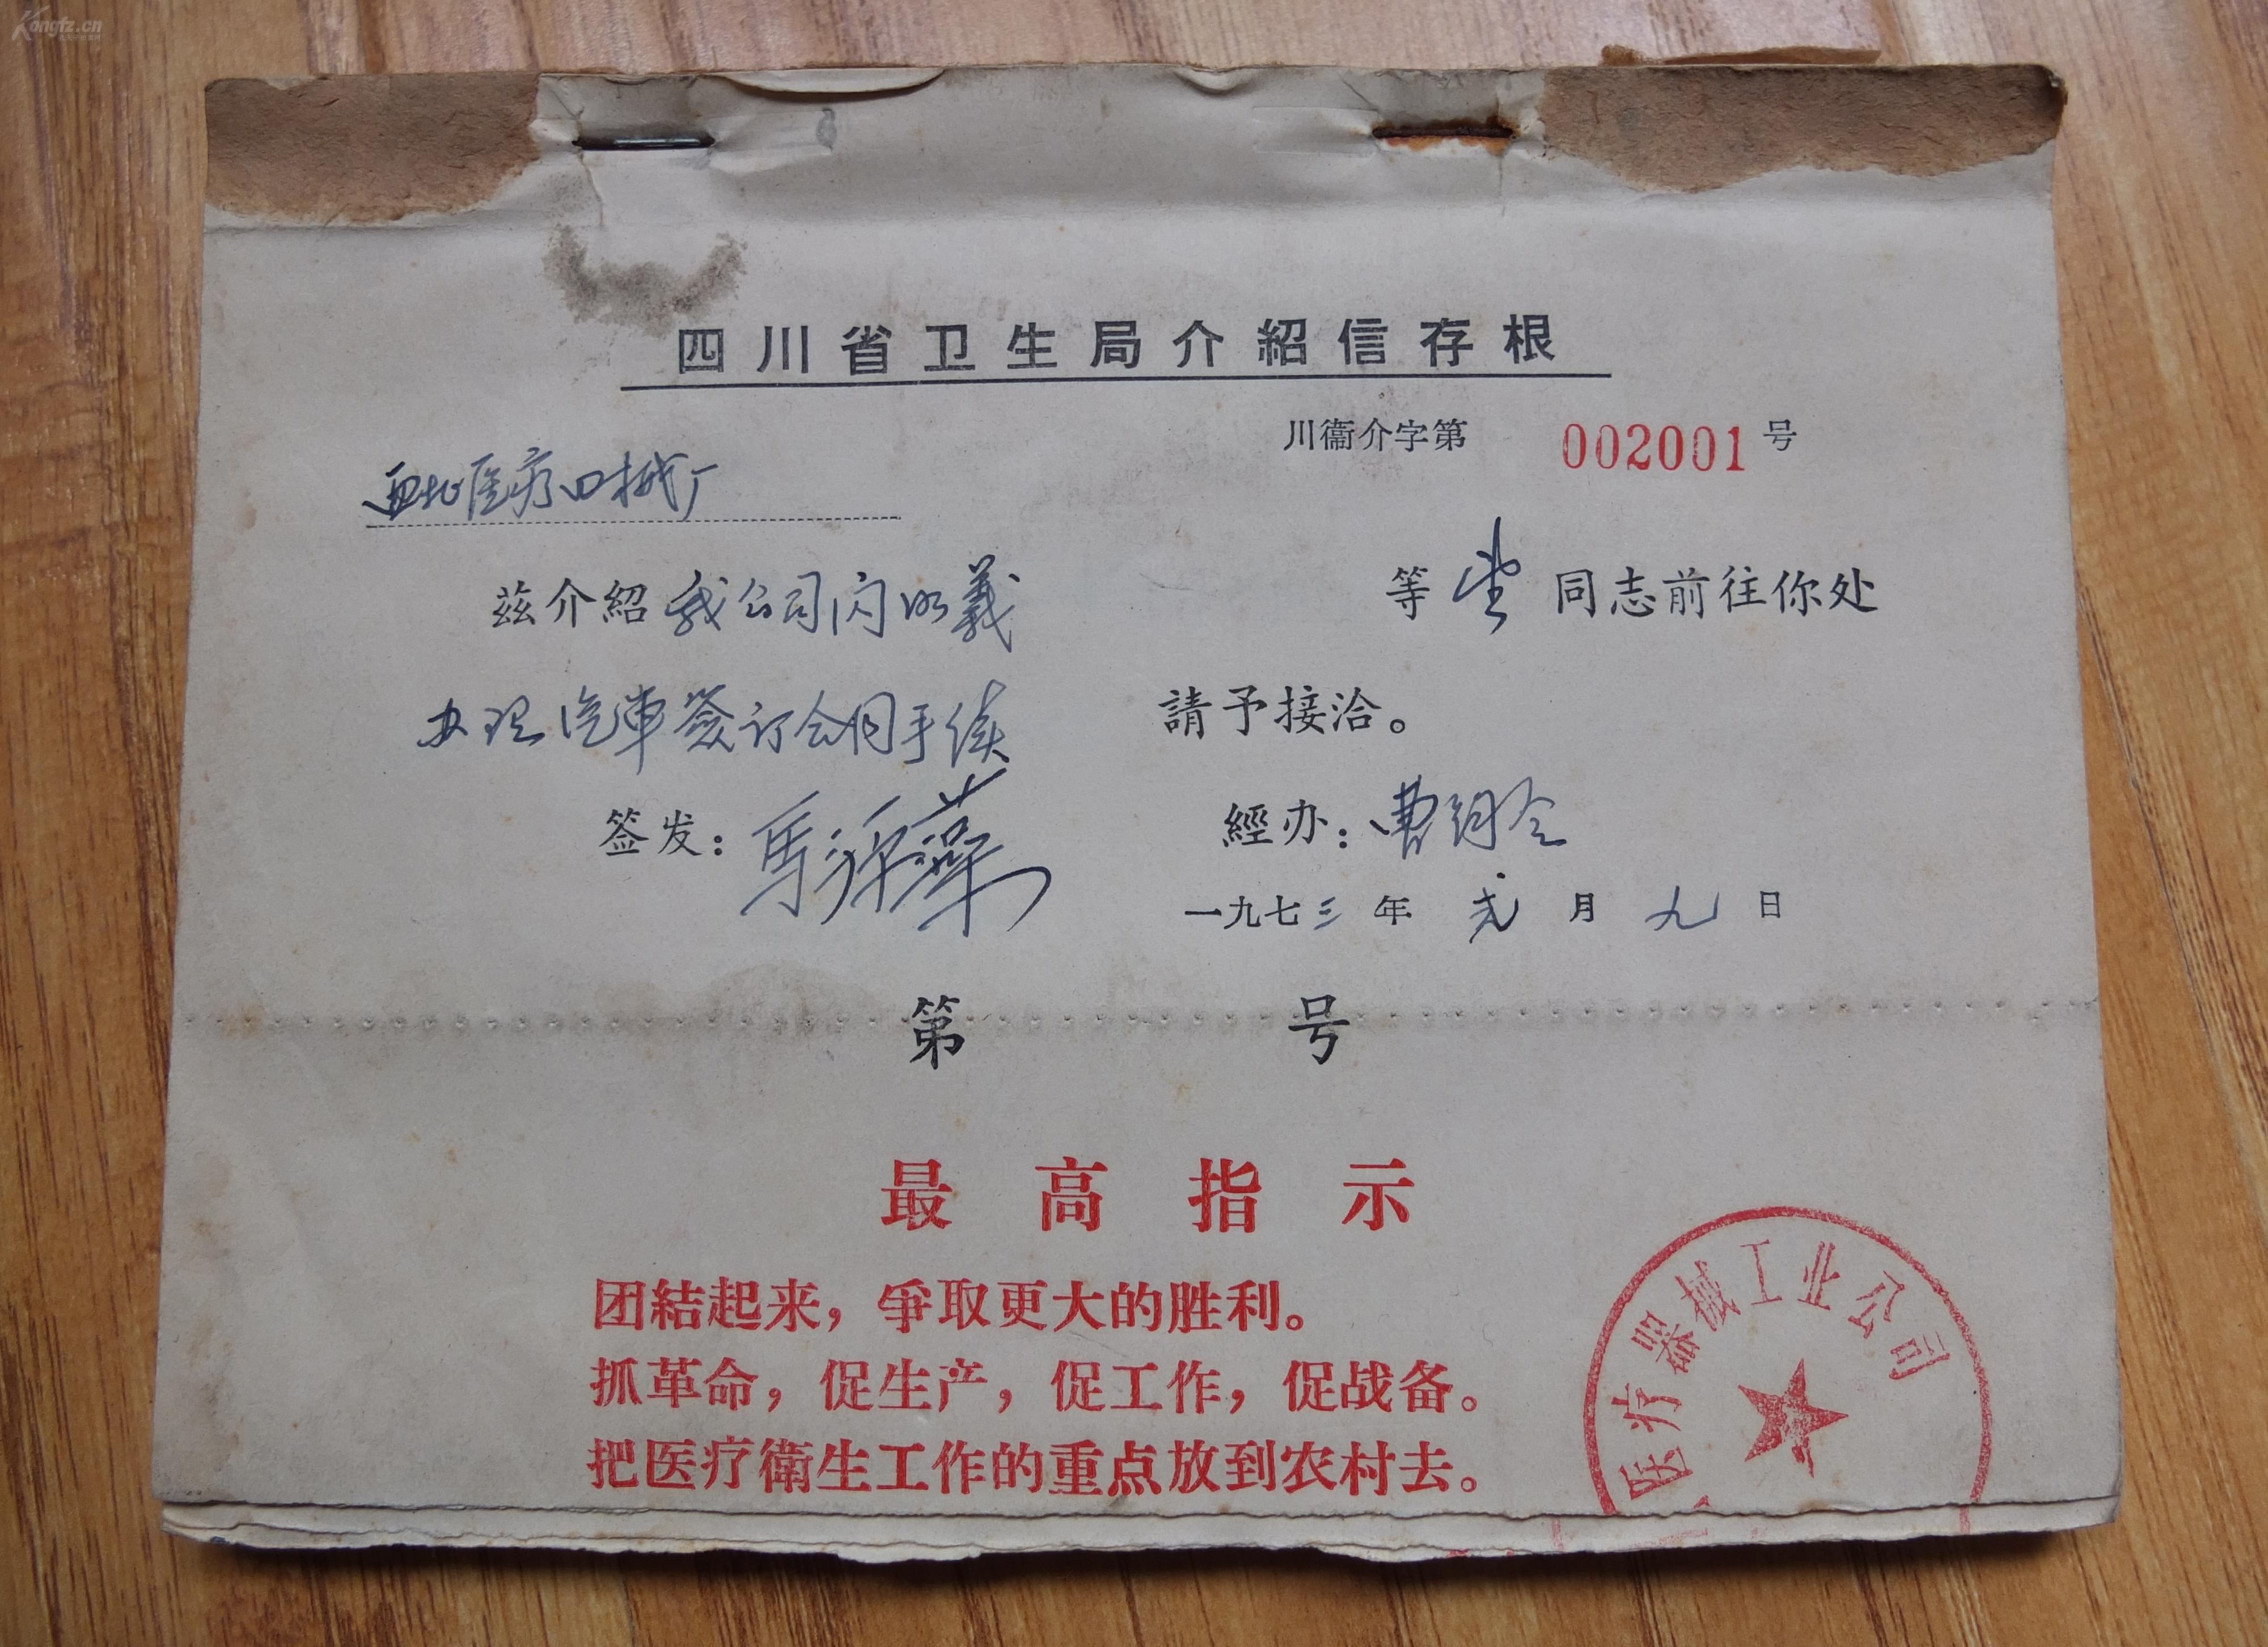 Kongfz.cn
四川省卫生局介紹信存根
川衞介字第 002001 号
西北医疗口械厂
茲介紹 我公司闪以義 等 同志前往你处
办理汽車簽订合同手续 請予接洽。
签发： 馬 經办： 曹
一九七三年 元月九日
第 号
最高指示
团結起来，爭取更大的胜利。
抓革命，促生产，促工作，促战备。
把医疗衛生工作的重点放到农村去。
医疗器械工业公司